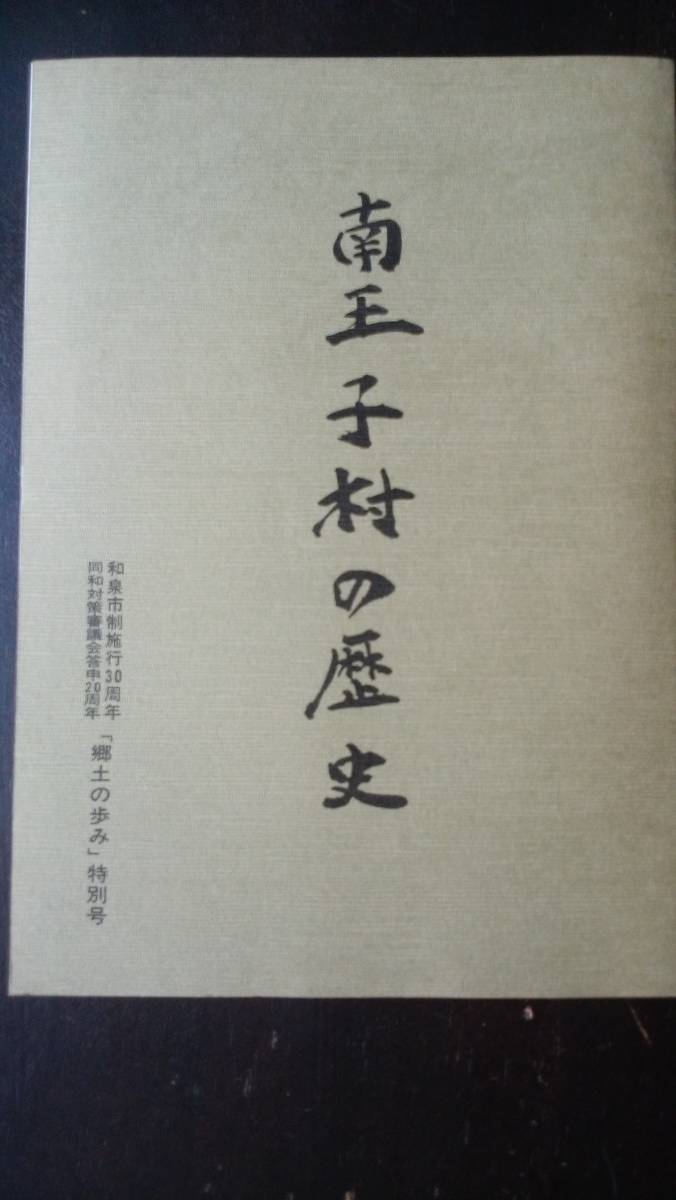 南王子村の歴史
和泉市制施行30周年
同和対策審議会答申20周年
「郷土の歩み」特別号